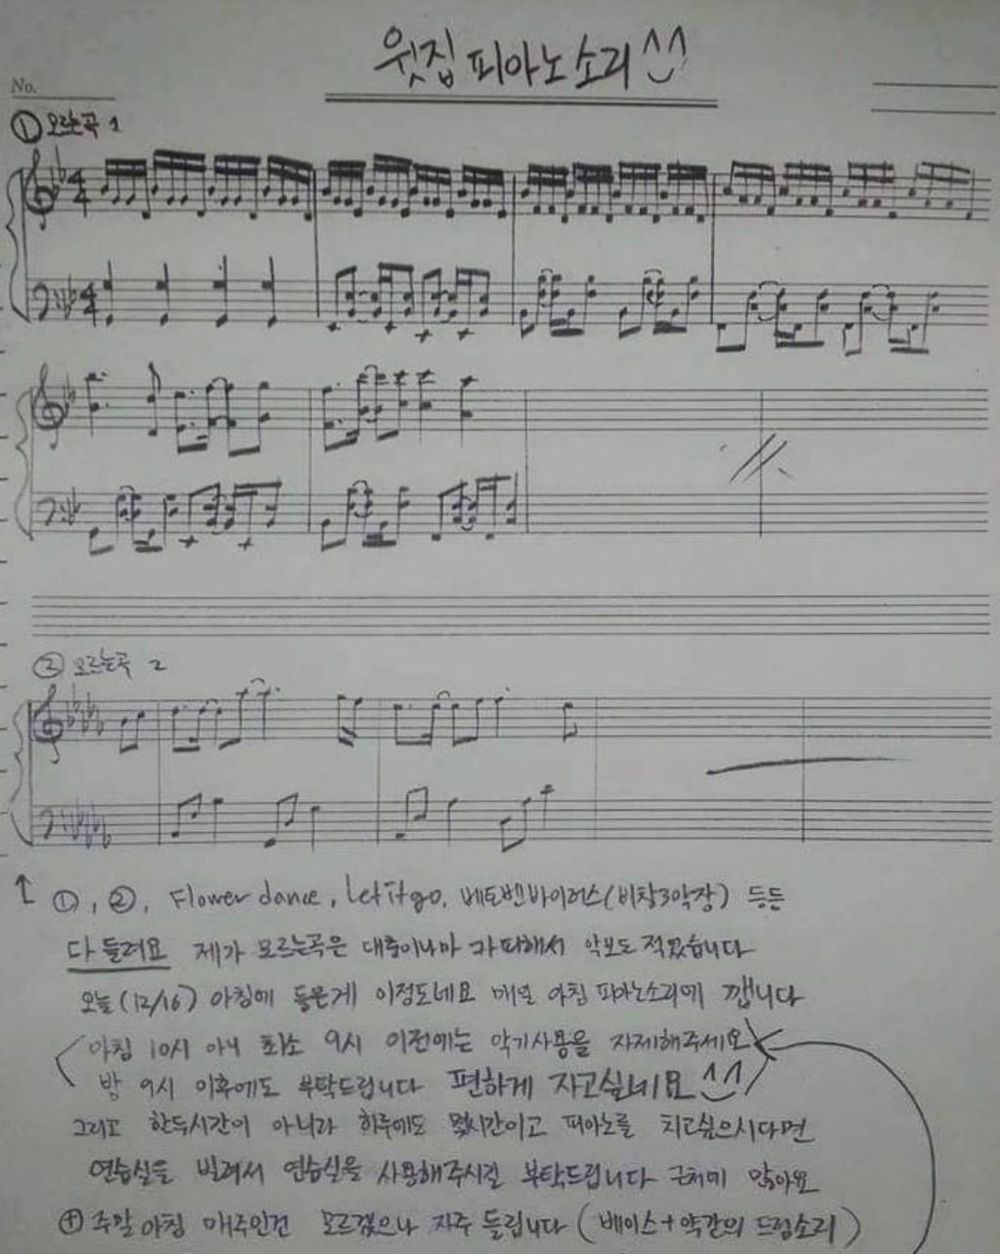 윗집 피아노 소리 ^^
No.
① 모르는곡 1
② 모르는곡 2
↑ ①, ②, Flower dance, Let it go, 베토벤바이러스(비창3악장) 등등
다 들려요 제가 모르는곡은 대충이나마 카피해서 악보도 적었습니다
오늘 (12/16) 아침에 들은게 이정도네요 매일 아침 피아노소리에 깹니다
(아침 10시 아니 최소 9시 이전에는 악기사용을 자제해주세요
밤 9시 이후에도 부탁드립니다 편하게 자고싶네요 ^^)
그리고 한두시간이 아니라 하루에도 몇시간이고 피아노를 치고싶으시다면
연습실을 빌려서 연습실을 사용해주시길 부탁드립니다 근처에 많아요
⊕ 주말 아침 매주인건 모르겠으나 자주 들립니다 (베이스+약간의 드럼소리)